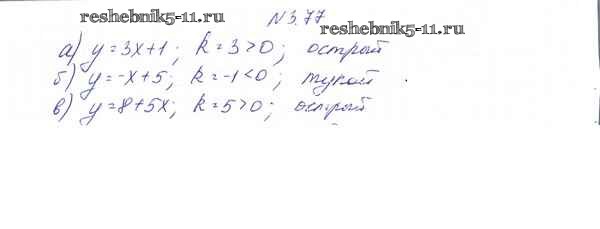 reshebnik5-11.ru
N 3.77
reshebnik5-11.ru
а) y = 3x+1; k = 3 > 0; острый
б) y = -x+5; k = -1 < 0; тупой
в) y = 8+5x; k = 5 > 0; острый
reshebnik5-11.ru